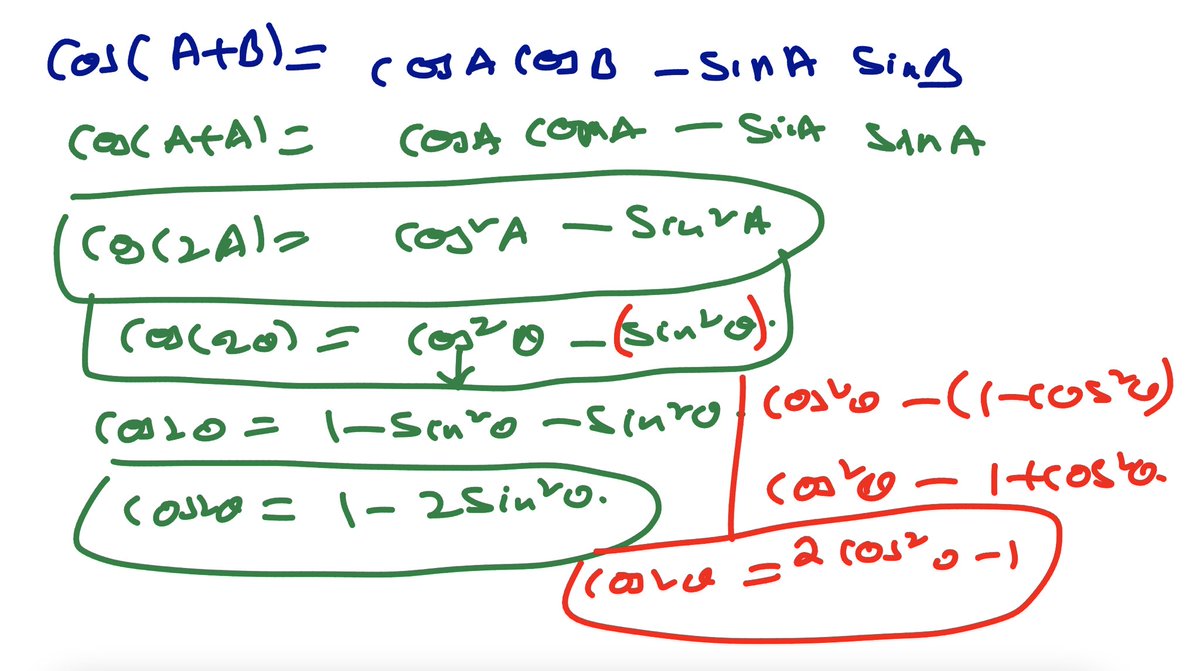 cos(A+B)= cosA cosB - sinA sinB
cos(A+A)= cosA cosA - sinA sinA
cos(2A)= cos²A - sin²A
cos(2θ) = cos²θ - (sin²θ).
cos2θ = 1-sin²θ - sin²θ
cos2θ = 1-2sin²θ.
cos²θ -(1-cos²θ)
cos²θ - 1+cos²θ.
cos2θ = 2cos²θ-1